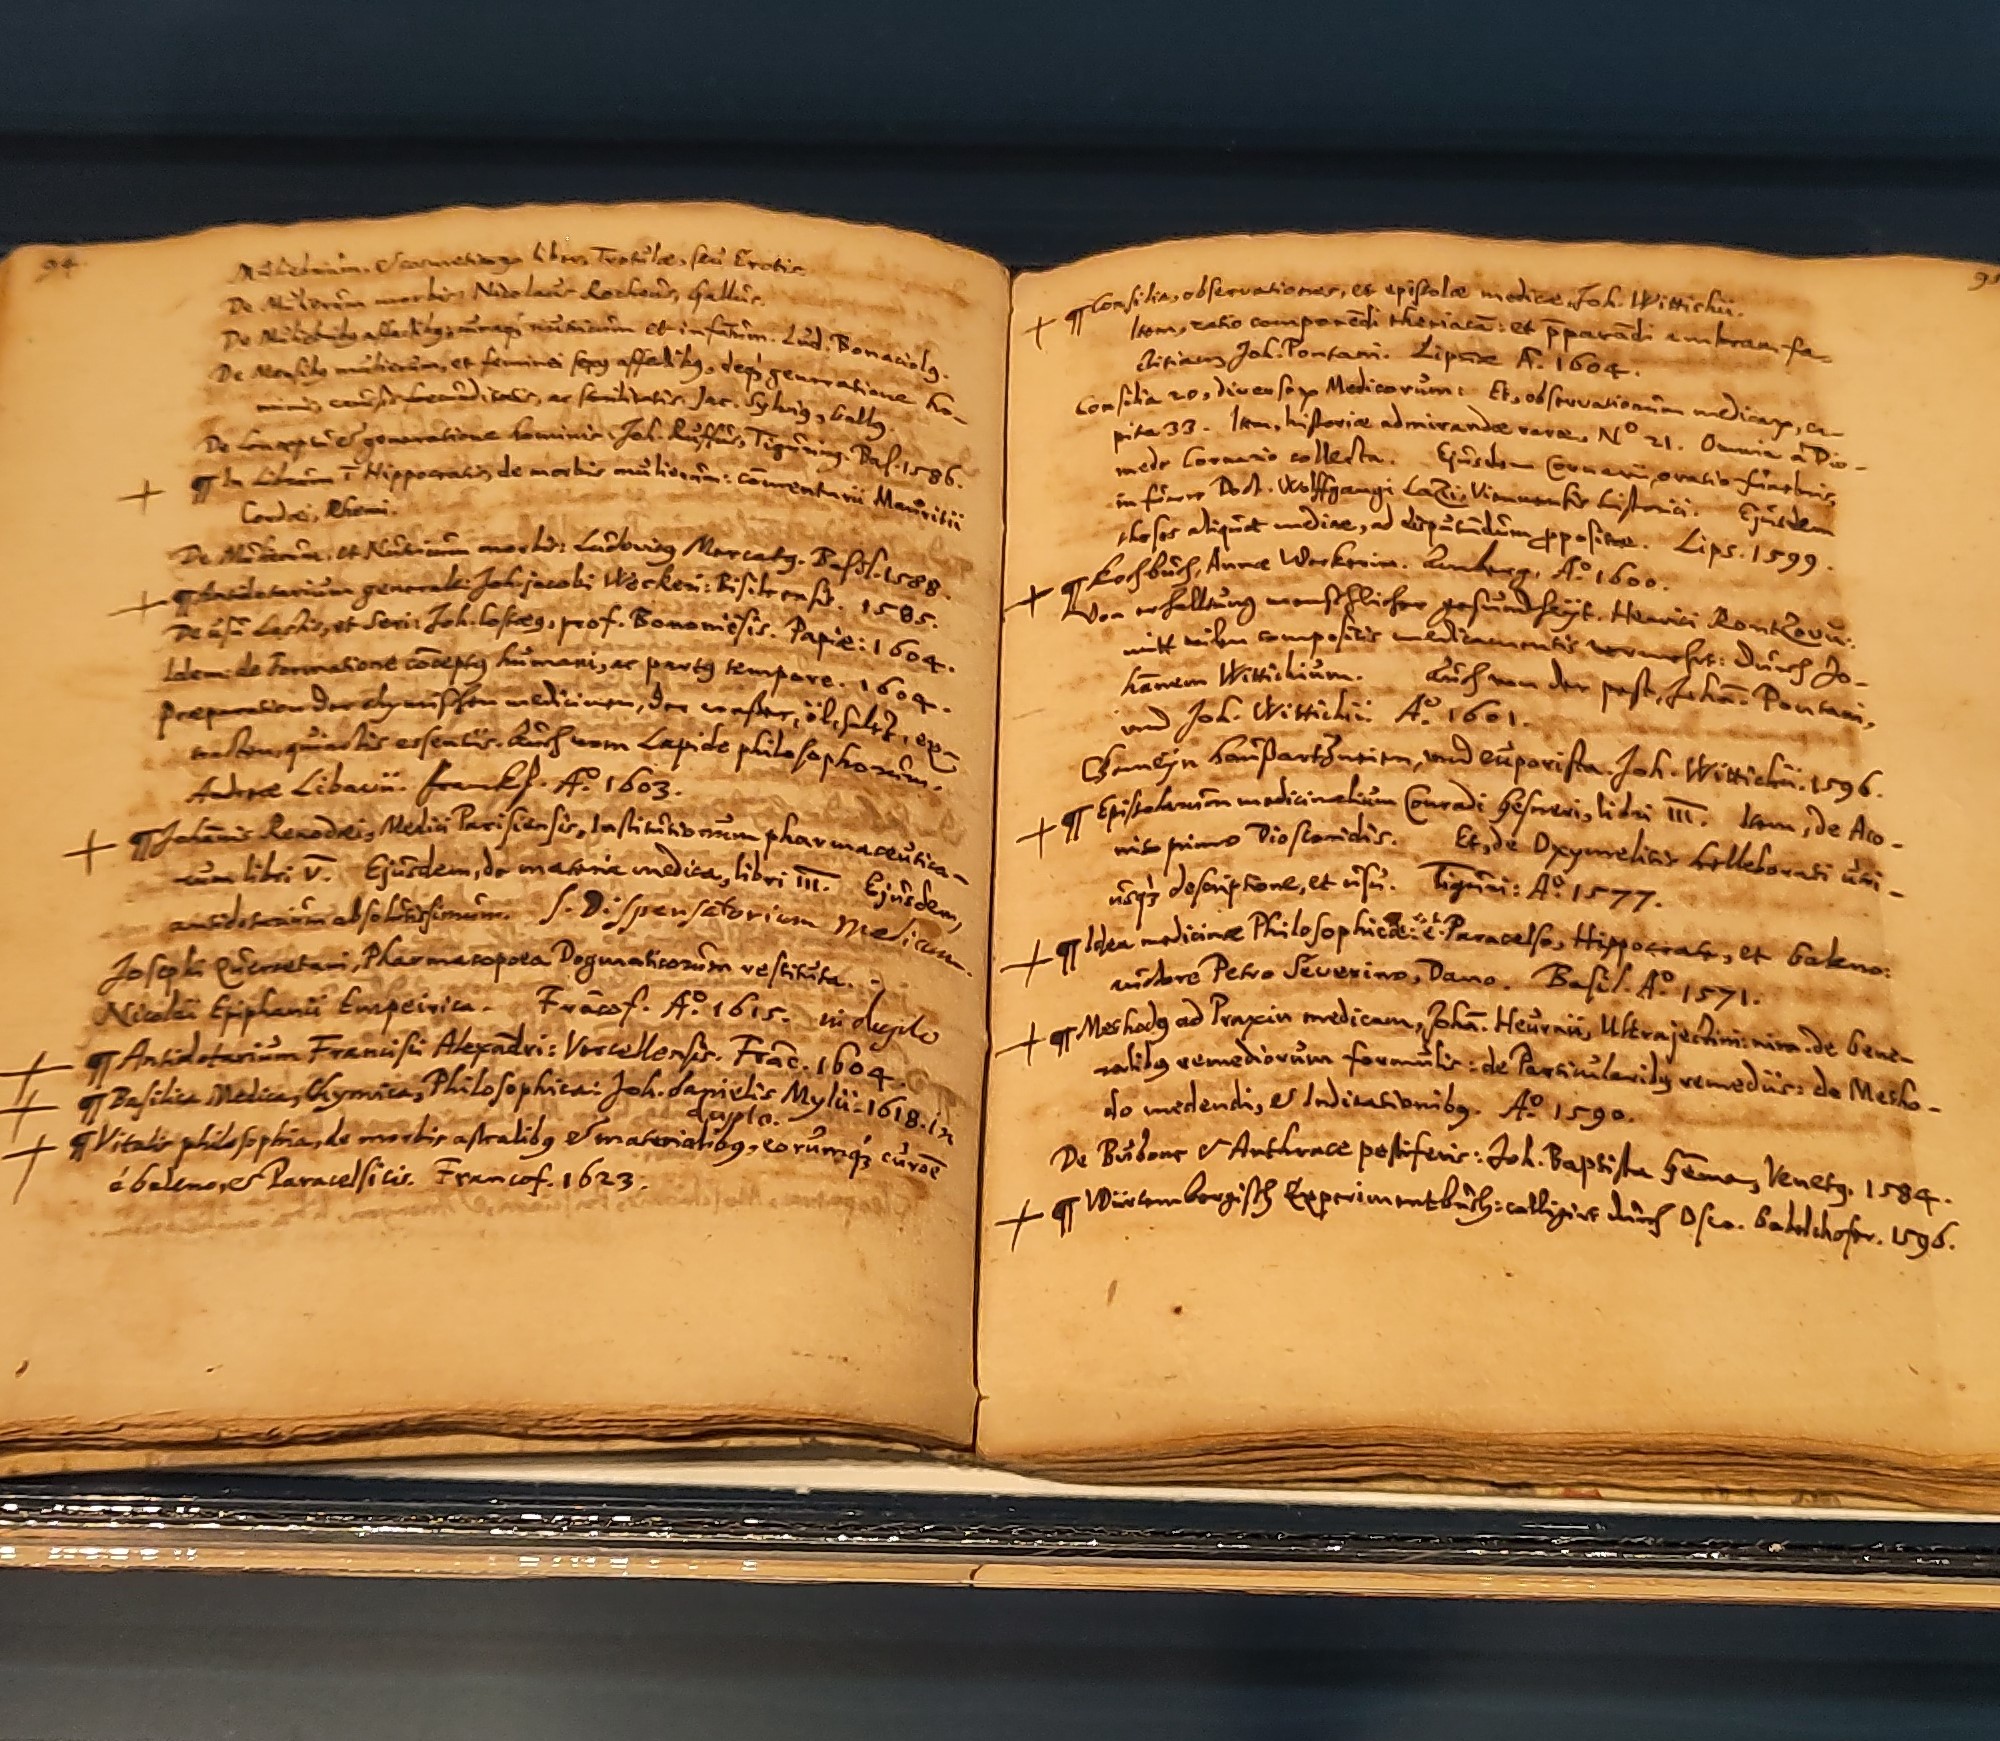 94
Muliebrium, & cosmeticωn liber, Trotulæ, seu Erotis.
De Mulierum morbis, Nicolaus Rocheus, Gallus.
De Muliebribꝫ affectibꝫ, nutricum et infantum. Lud. Bonaciolꝫ.
De Mensibꝫ mulierum, et feminei affectibꝫ, deqꝫ generatione ho-
minis, ac Jac. Sylviꝫ, Gallꝫ.
De Conceptu et generatione hominis. Joh. Ruffus, Tigurinꝫ. Bas. 1586.
¶ In Librum Hippocratis, de morbis mulierum: com̄entarii Mauritii
Cordæi, Rhemi.
De Mulierum, et Nutricum morbis: Ludovicꝫ Mercatꝫ. Basil. 1588.
¶ Antidotarium generale: Joh. Jacobi Weckeri: Basileensis. 1585.
De usu Lactis, et Seri: Joh. Costæꝫ, prof. Bononiēsis. Papiæ: 1604.
Idem: de Formatione cōceptꝫ humani, ac partꝫ tempore. 1604.
Præparation der chymischen medicinen, der waßer, öl, saltz, ex-
tracten, quintis essentiis. Auch vom Lapide philosophorum.
Andreæ Libavii. Franckf. Aº. 1603.
¶ Johānis Renodæi, Medici Parisiensis, Institutionum pharmaceutica-
rum libri V. Ejusdem, de materia medica, libri III. Ejusdem,
antidotarium absolutissimum. S. Dispensatorium Medicum.
Josephi Quercetani, Pharmacopoea Dogmaticorum restituta.
Nicolai Epiphanii Empeirica. Frācof. Aº. 1615. in duplo
¶ Antidotarium Francisci Alexādri: Vercellensis. Frāc. 1604.
¶ Basilica Medica, Chymica, Philosophica: Joh. Danielis Mylii. 1618. in
duplo.
¶ Vitalis philosophia, de morbis astralibꝫ & materialibꝫ, eorumqꝫ curōe
é Galeno, & Paracelsicis. Francof. 1623.
95
¶ Consilia, observationes, et epistolæ medicæ, Joh. Wittichii.
Item, ratio componēdi theriacā: et p̄parādi ambram fa-
ctitiam, Joh. Pontani. Lipsiæ A. 1604.
Consilia 20, diversorꝫ Medicorum: Et, observationum medicarꝫ, ca-
pita 33. Item, historiæ admirandæ raræ, Nº 21. Omnia à Dio-
mede Cornario collecta. Ejusdem Cornarii, oratio funebris,
in funere Doct. Wolffgangi Lazii, Viennensis historici. Ejusdem
theses aliquot medicæ, ad disputandum ꝓpositæ. Lips. 1599.
¶ Kochbuch, Annæ Weckerin. Amberg, Aº. 1600.
Von erhaltung menschlicher gesundheÿt. Henrici Rantzovii:
mitt vilen compositis medicamentis vermehrt: durch Jo-
hānem Wittichium. Auch von der pest, Johān. Pontani,
vnd Joh. Wittichii. Aº. 1601.
Gemeÿn haußartzneien, vnd euporista. Joh. Wittichii. 1596.
¶ Epistolarum medicinalium Conradi Gesneri, libri III. Item, de Aco-
nito primo Dioscoridis. Et, de Oxymelitis helleborati uti-
usqꝫ descriptione, et usu. Tiguri: Aº. 1577.
¶ Idea medicinæ Philosophicæ: è Paracelso, Hippocrate, et Galeno:
auctore Petro Severino, Dano. Basil. Aº. 1571.
¶ Methodꝫ ad Praxin medicam, Johā. Heurnii, Ultrajectini: nim̄. de Gene-
ralibꝫ remediorum formulis: de Particularibꝫ remediis: de Metho-
do medendi, & Indicationibꝫ. Aº. 1590.
De Bubone & Anthrace pestiferis: Joh. Baptista Gēma, Venetꝫ. 1584.
¶ Würtembergisch Experimentbuch: colligirt durch Osw. Gabelchofer. 1596.